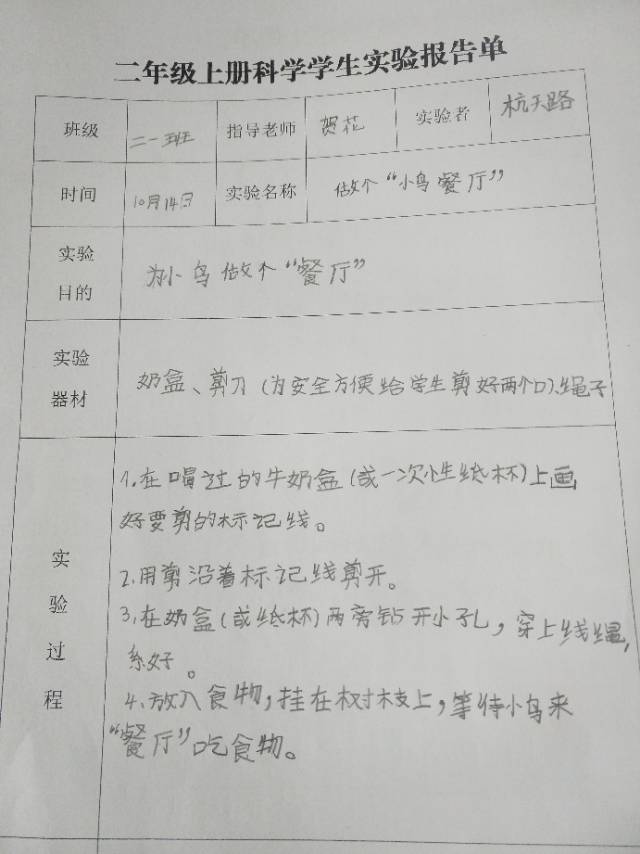 二年级上册科学学生实验报告单
班级 二一班 指导老师 贺花 实验者 杭天路
时间 10月14日 实验名称 做个“小鸟餐厅”
实验
目的
为小鸟做个“餐厅”
实验
器材
奶盒、剪刀（为安全方便给学生剪好两个口）、绳子
实验过程
1.在喝过的牛奶盒（或一次性纸杯）上画
好要剪的标记线。
2.用剪沿着标记线剪开。
3.在奶盒（或纸杯）两旁钻开小孔，穿上线绳，
系好。
4.放入食物，挂在树枝上，等待小鸟来
“餐厅”吃食物。